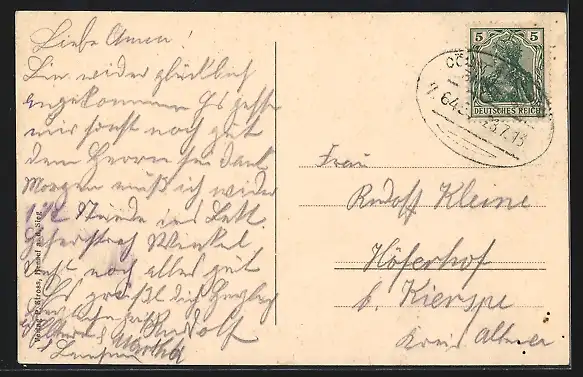 Liebe Anna!
Bin wieder glücklich
angekommen Es geht
mir sonst noch gut
dem Herrn sei Dank
Morgen muß ich wieder
1/2 Stunde ins Bett.
Winkel
noch alles gut
Es grüßt dich herzlich
Rudolf
Martha
Verlag P. Kross, Hennef a. d. Sieg
5 5
DEUTSCHES REICH
CÖLN
Z. 645 23.7.13
Frau
Rudolf Kleine
Höferhof
b. Kierspe
Kreis Altena